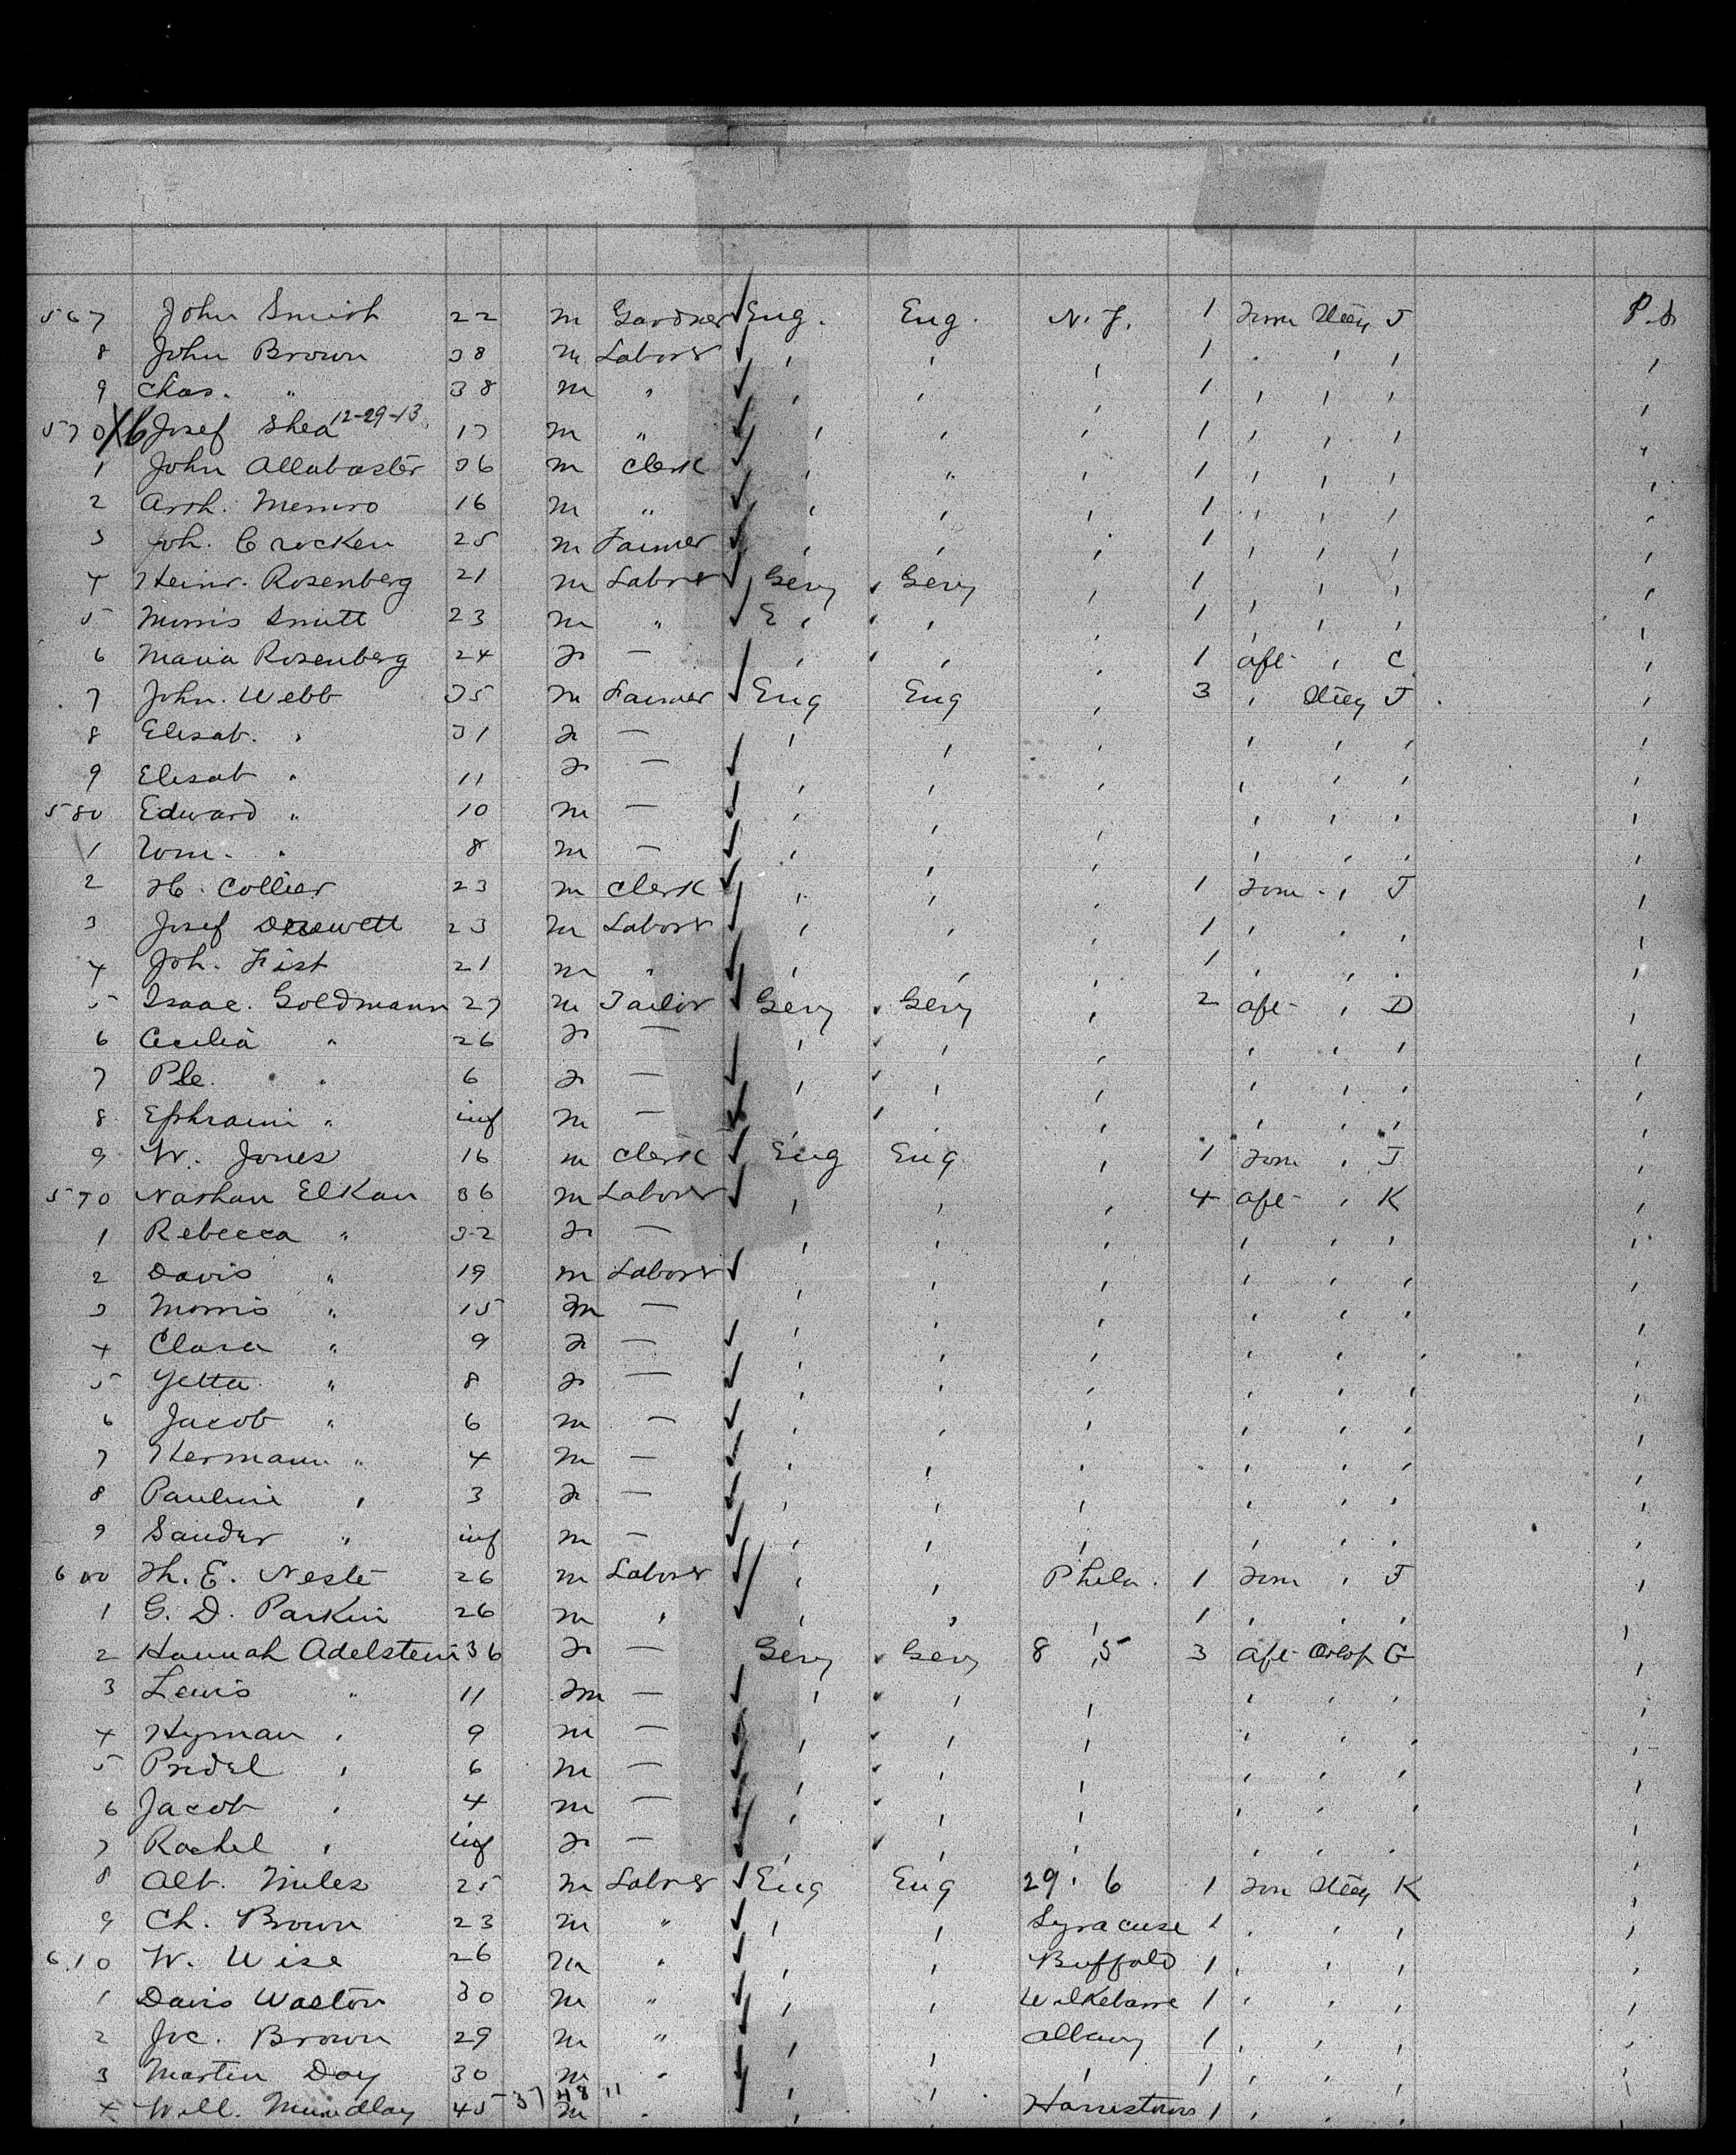 567 John Smith 22 m Gardner Eng. Eng. N.Y. 1 Steeg J P.S.
8 John Brown 38 m Labour , , , 1 , , , ,
9 Chas. " 38 m , , , , 1 , , , ,
570 X6 Josef Shea 12-29-13 17 m " , , , 1 , , , ,
1 John Allabaster 36 m Clerk , " , 1 , , , ,
2 Arth. 16 m " , , , 1 , , , ,
3 Joh. Crocken 25 m Farmer , , , 1 , , , ,
4 Heinr. Rosenberg 21 m Labour Gery Gery , 1 , , , ,
5 Morris Smitt 23 m " , , , 1 , , , ,
6 Maria Rosenberg 24 f — , , , 1 aft , C ,
7 John Webb 35 m Farmer Eng Eng , 3 , Steeg J ,
8 Elisab. , 31 f — , , , , , , ,
9 Elisab " 11 f — , , , , , , ,
580 Edward " 10 m — , , , , , , ,
1 Wm. " 8 m — , , , , , , ,
2 H. Collier 23 m Clerk , , , 1 , J ,
3 Josef 23 m Labour , , , 1 , , , ,
4 Joh. Fist 21 m " , , , 1 , , , ,
5 Isaac. Goldmann 27 m Tailor Gery Gery , 2 aft , D ,
6 Cecilia " 26 f — , , , , , , ,
7 " 6 f — , , , , , , ,
8 Ephraim " inf m — , , , , , , ,
9 W. Jones 16 m Clerk Eng Eng , 1 , J ,
570 Nathan Elkan 36 m Labour , , , 4 aft , K ,
1 Rebecca " 32 f — , , , , , , ,
2 Davis " 19 m Labour , , , , , , ,
3 Morris " 15 m — , , , , , , ,
4 Clara " 9 f — , , , , , , ,
5 Yetta " 8 f — , , , , , , ,
6 Jacob " 6 m — , , , , , , ,
7 Hermann " 4 m — , , , , , , ,
8 Pauline , 3 f — , , , , , , ,
9 Sander " inf m — , , , , , , ,
600 Th. E. Neste 26 m Labour , , Phila. 1 , J ,
1 G. D. Parkin 26 m , , , , 1 , , , ,
2 Hannah Adelstein 36 f — Gery Gery 8 , 5 3 aft Orlop G ,
3 Lewis " 11 m — , , , , , , ,
4 Hyman , 9 m — , , , , , , ,
5 , 6 m — , , , , , , ,
6 Jacob , 4 m — , , , , , , ,
7 Rachel , inf f — , , , , , , ,
8 Alb. Miles 25 m Labour Eng Eng 29 . 6 1 Steeg K ,
9 Ch. Brown 23 m " , , Syracuse 1 , , , ,
610 W. Wise 26 m " , , Buffalo 1 , , , ,
1 Davis Walton 30 m " , , Wilkebarre 1 , , , ,
2 Joc. Brown 29 m " , , Albany 1 , , , ,
3 Martin Day 30 m " , , , 1 , , , ,
4 Will. Mundlay 45 37 H8 11 m " , , Harrestown 1 , , , ,